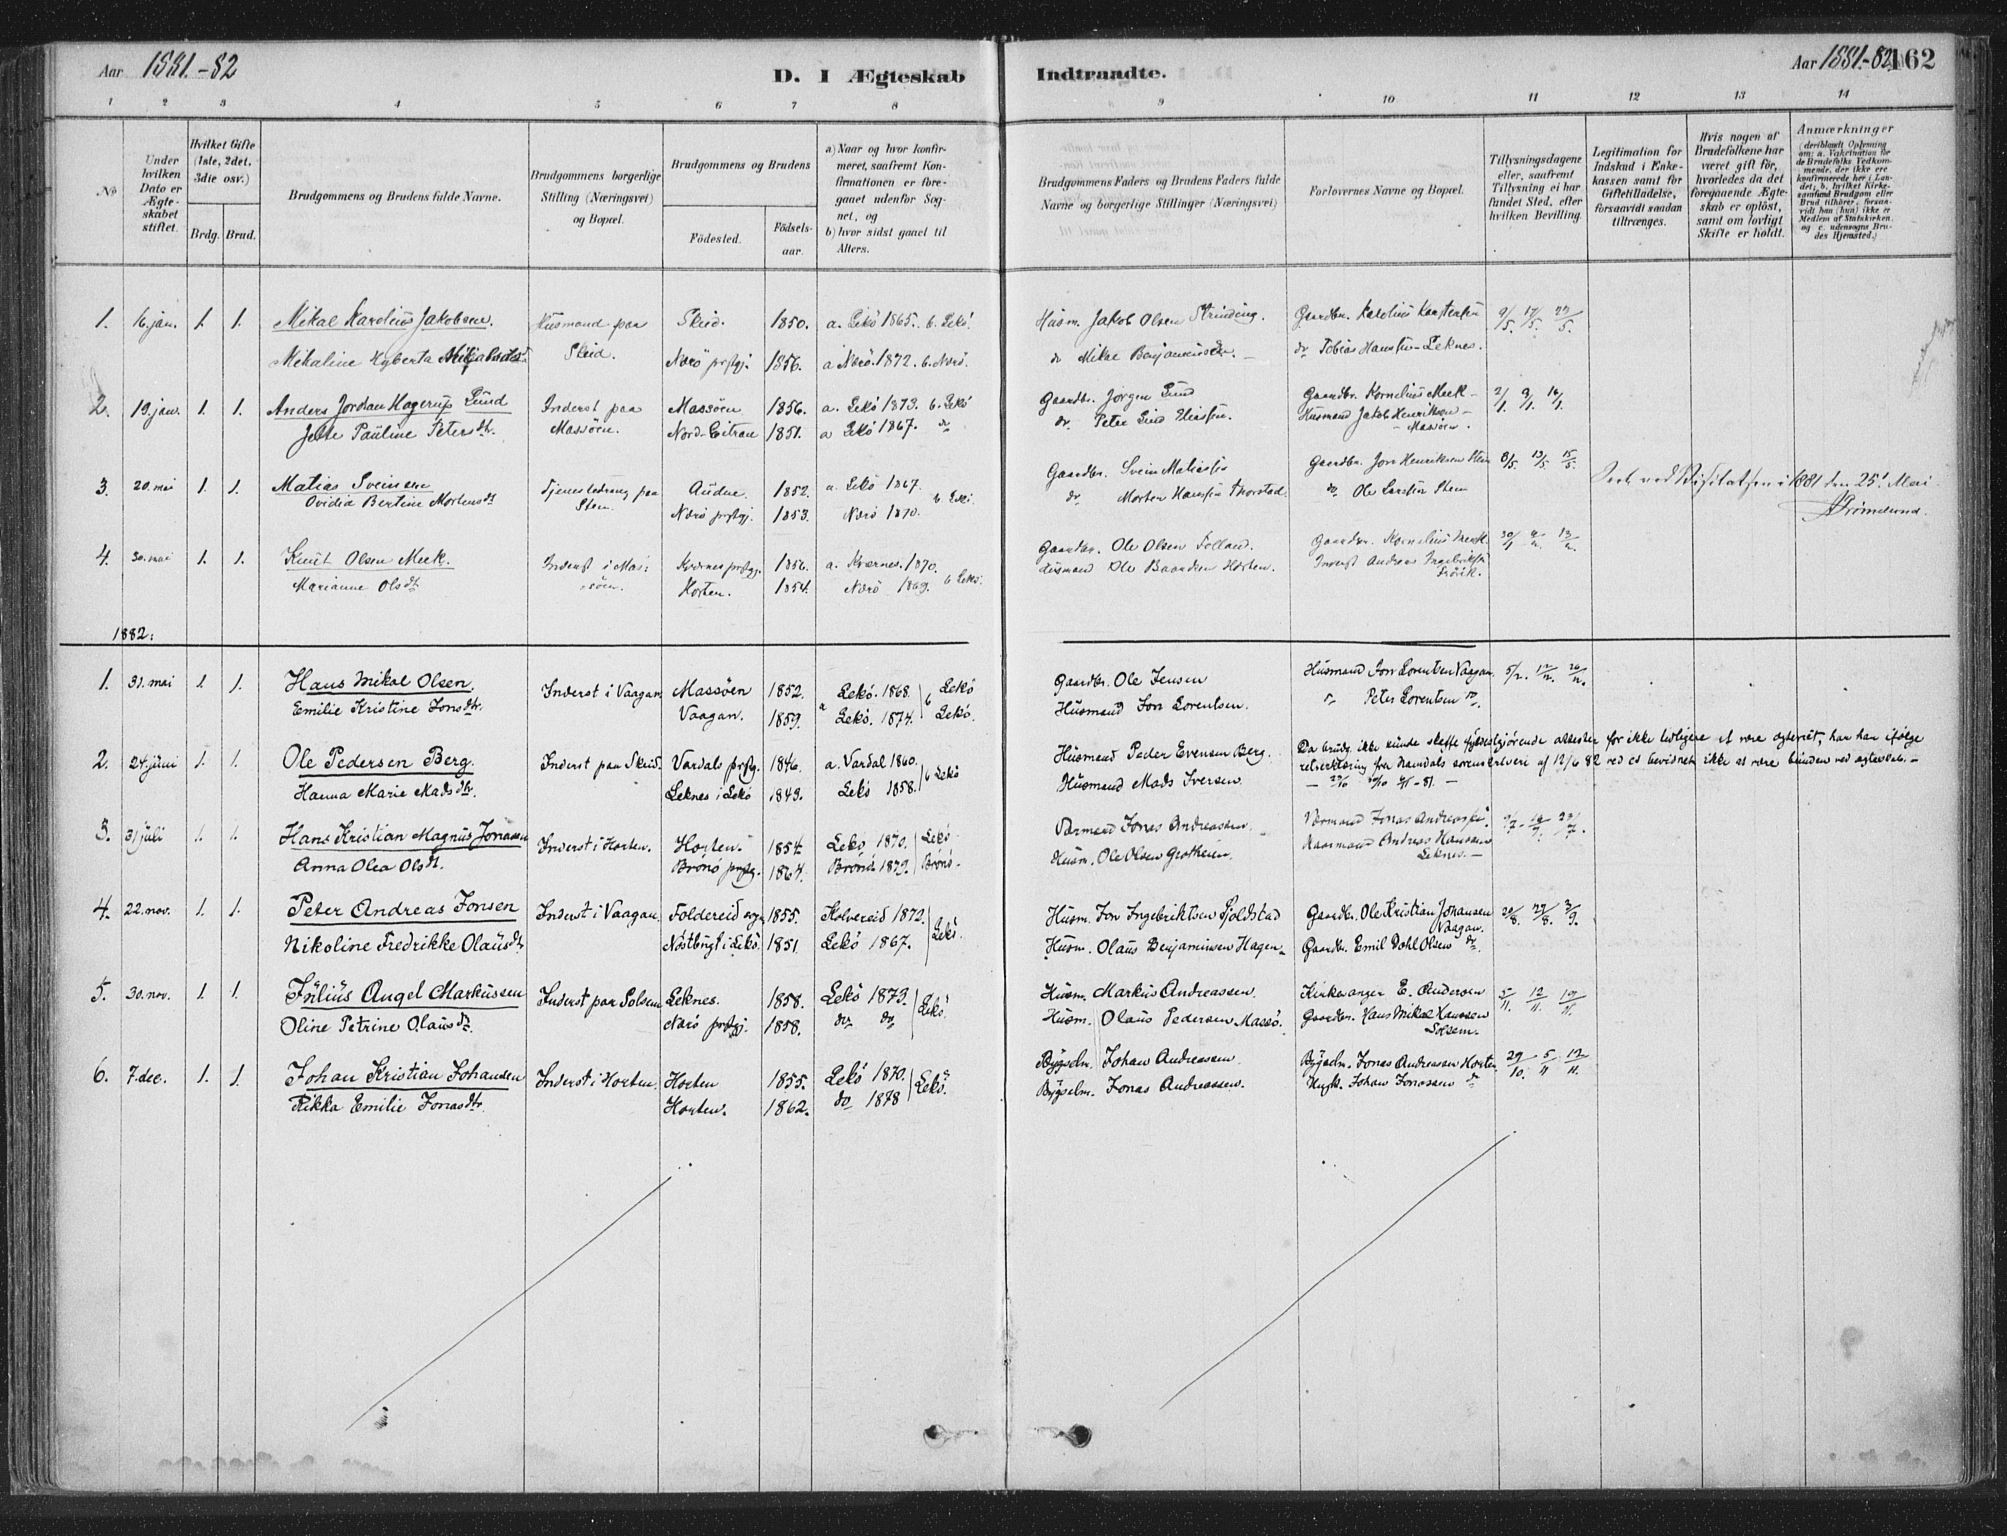 Aar 1881.-82
D. I Ægteskab
Indtraadte.
Aar 1881.-82.
162
1 2 3 4 5 6 7 8
9 10 11 12 13 14
No
Under hvilken Dato er Ægteskabet stiftet.
Hvilket Gifte (1ste, 2det, 3die osv.)
Brdg. Brud.
Brudgommens og Brudens fulde Navne.
Brudgommens borgerlige Stilling (Næringsvei) og Bopæl.
Brudgommens og Brudens
Fødested.
Fødselsaar.
a) Naar og hvor konfirmeret, saafremt Konfirmationen er foregaaet udenfor Sognet, og
b) hvor sidst gaaet til Alters.
Brudgommens Faders og Brudens Faders fulde Navne og borgerlige Stillinger (Næringsvei)
Forlovernes Navne og Bopæl.
Tillysningsdagene eller, saafremt Tillysning ei har fundet Sted, efter hvilken Bevilling.
Legitimation for Indskud i Enkekassen samt for Giftetilladelse, forsaavidt saadan tiltrænges.
Hvis nogen af Brudefolkene har været gift før, hvorledes da det foregaaende Ægteskab er opløst, samt om lovligt Skifte er holdt.
Anmærkninger (deriblandt Oplysning om: a. Vakcination for de Brudefolks Vedkommende, der ikke ere konfirmerede her i Landet; b. hvilket Kirkesamfund Brudgom eller Brud tilhører, forsaavidt han (hun) ikke er Medlem af Statskirken, og c. udensogns Brudes Hjemsted.)
1. 16. jan. 1. 1. Mikal Karolius Jakobsen. Husmand paa Skeid. 1850. a. Lekö 1865. b. Lekö. Husm. Jakob Olsen Gaardbr. Karolius Karstensen 9/5. 17/5. 22/5.
Mikaline Hyberta Skeid. Nærö prstgj. 1856. a Nærö. 1872. b. Nærö. do Mikal Benjaminsen. do Tobias Hansen Leknes.
2. 19. jan. 1. 1. Anders Jordan Hagerup Lund Inderst paa Massöen 1856. a. Lekö 1873. b. Lekö Gaardbr. Jörgen Lund Gaardbr. Kornelius Meek 2/1. 9/1. 16/1.
Pauline Petersdt. Massöen. Nord-Gitran 1851. a Lekö 1867. do do Peter Husmand Jakob Henriksen Massöen.
3. 20. mai 1. 1. Matias Sveinsen Tjenestedreng paa 1852. a. Lekö 1867. Gaardbr. Svein Gaardbr. Jon Henriksen Sten 8/5. 13/5. 15/5.
Ovidia Bertine Mortensdt. Sten. Nærö prstgj. 1853. Nærö 1870. b Lekö. do Morten Hansen Thorstad. do Ole Larsen Sten
Seet ved Visitatsen i 1881 den 25. Mai.
4. 30. mai 1. 1. Knut Olsen Meek. Inderst i Massöen. Kværnes prstgj. 1856. a. Kvernes. 1870. Gaardbr. Ole Olsen Folland. Gaardbr. Kornelius Meek
Marianne Olsdt. Horten. 1854. Nærö 1869. b Lekö. Husmand Ole Baardsen Horten. Inderst Andreas Ingebriktsen
1882:
1. 31. mai 1. 1. Hans Mikal Olsen. Inderst i Vaagan. Massöen 1852. a Lekö. 1868. b Lekö Gaardbr. Ole Jensen Husmand Jon Lorentsen Vaagan
Emilie Kristine Jonsdtr. Vaagan. 1859. Lekö. 1874. Lekö. Husmand Jon Lorentsen. Peter Lorentsen do.
2. 24. juni 1. 1. Ole Pedersen Berg. Inderst paa Skeid. Vardals prstg. 1846. a. Vardal 1860. b Lekö Husmand Peder Evensen Berg.
Hanna Marie Madsdtr. Leknes i Lekö 1843. Lekö 1858. Husmand Mads Iversen.
Da brudg. ikke kunde skaffe fyldestgjörende attester for ikke tidligere at være ægteviet, har han ifölge
retserklæring fra Namdals sorenskriveri af 12/6 82 ved ed bevidnet ikke at være bunden ved ægteskab.
3. 31 juli 1. 1. Hans Kristian Magnus Jonassen Inderst i Horten. Horten. 1854. Lekö 1870. Lekö Jonas Andreassen Jonas Andreassen
Anna Olea Olsdt. Brönö prstg. 1864. Brönö 1879. Brönö. Husm. Ole Olsen Grotheim. Andreas Hansen Leknes.
4. 22. nov. 1. 1. Peter Andreas Jonsen Inderst i Vaagan. Foldereid sogn 1855. Kolvereid 1872. Lekö. Husm. Jon Ingebriktsen Gaardbr. Ole Kristian Johansen Vaagan. 20/8. 27/8. 3/9.
Nikoline Fredrikke Olausdt. Nöstbugt i Lekö. 1851 Lekö 1867. Husm. Olaus Benjaminsen Hagen. Gaardbr. Emil Dahl Olsen do
5. 30. nov. 1. 1. Julius Angel Markussen Inderst paa Solsem Leknes. 1858. Lekö 1873. Lekö. Husm. Markus Andreassen. Kirkesanger E. Andersen 5/11. 12/11. 19/11.
Oline Petrine Olausdt. Nærö prstgj. 1858. do do Husm. Olaus Pedersen Massö. Gaardbr. Hans Mikal Hanssen Solsem.
6. 7. dec. 1. 1. Johan Kristian Johansen Inderst i Horten. Horten 1855. Lekö 1870. Lekö. Bygselm. Johan Andreassen. Bygselm. Jonas Andreassen Horten 29/10. 5/11 12/11.
Rikka Emilie Jonasdtr. Horten. 1862. do 1878 Bygselm. Jonas Andreassen. Johan Jonassen do